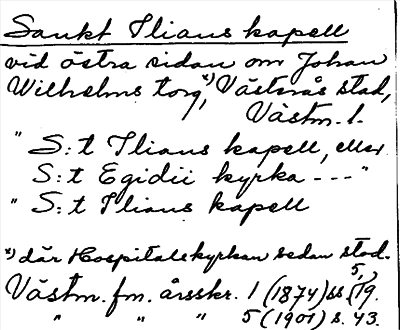 Sankt Ilians kapell
vid östra sidan om Johan
Wilhelms torg,*) Västerås stad,
Västm. l.
" S:t Ilians kapell, eller
S:t Egidii kyrka --- "
" S:t Ilians kapell
*) där Hospitalskyrkan sedan stod.
Västm. fm. årsskr. 1 (1874) ss. 5, 19.
" " " 5 (1901) s. 43.